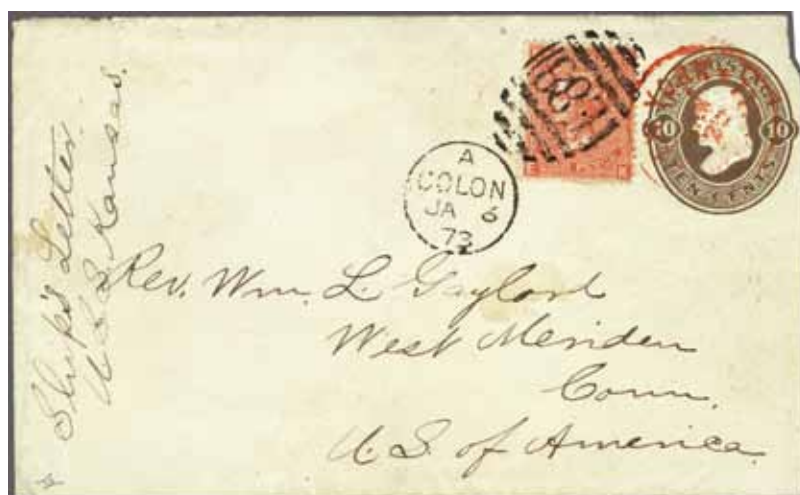 Ship's Letter
U.S.S. Kansas.
A
COLON
JA 6
73
E88
U.S. POSTAGE
10 10
TEN CENTS
E K
Rev. Wm. L. Gaylord
West Meriden
Conn.
U.S. of America.